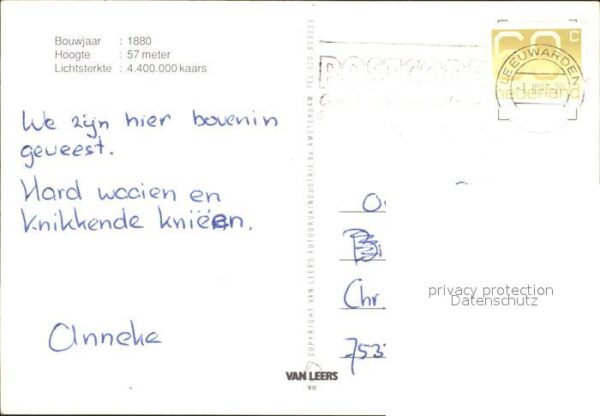 Bouwjaar : 1880
Hoogte : 57 meter
Lichtsterkte : 4.400.000 kaars
60 c
nederland
LEEUWARDEN
We zijn hier bovenin
geweest.
Hard waaien en
knikkende knieën.
Anneke
COPYRIGHT VAN LEERS FOTODRUKINDUSTRIE BV AMSTERDAM TEL. 020
O
Chr
753
privacy protection
Datenschutz
VAN LEERS
90